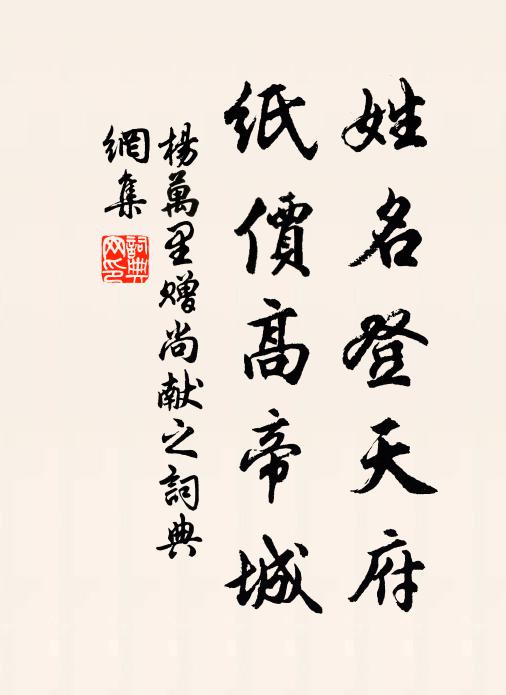 姓名登天府
紙價高帝城
楊萬里贈尚献之詞典
網集
詞典
网印